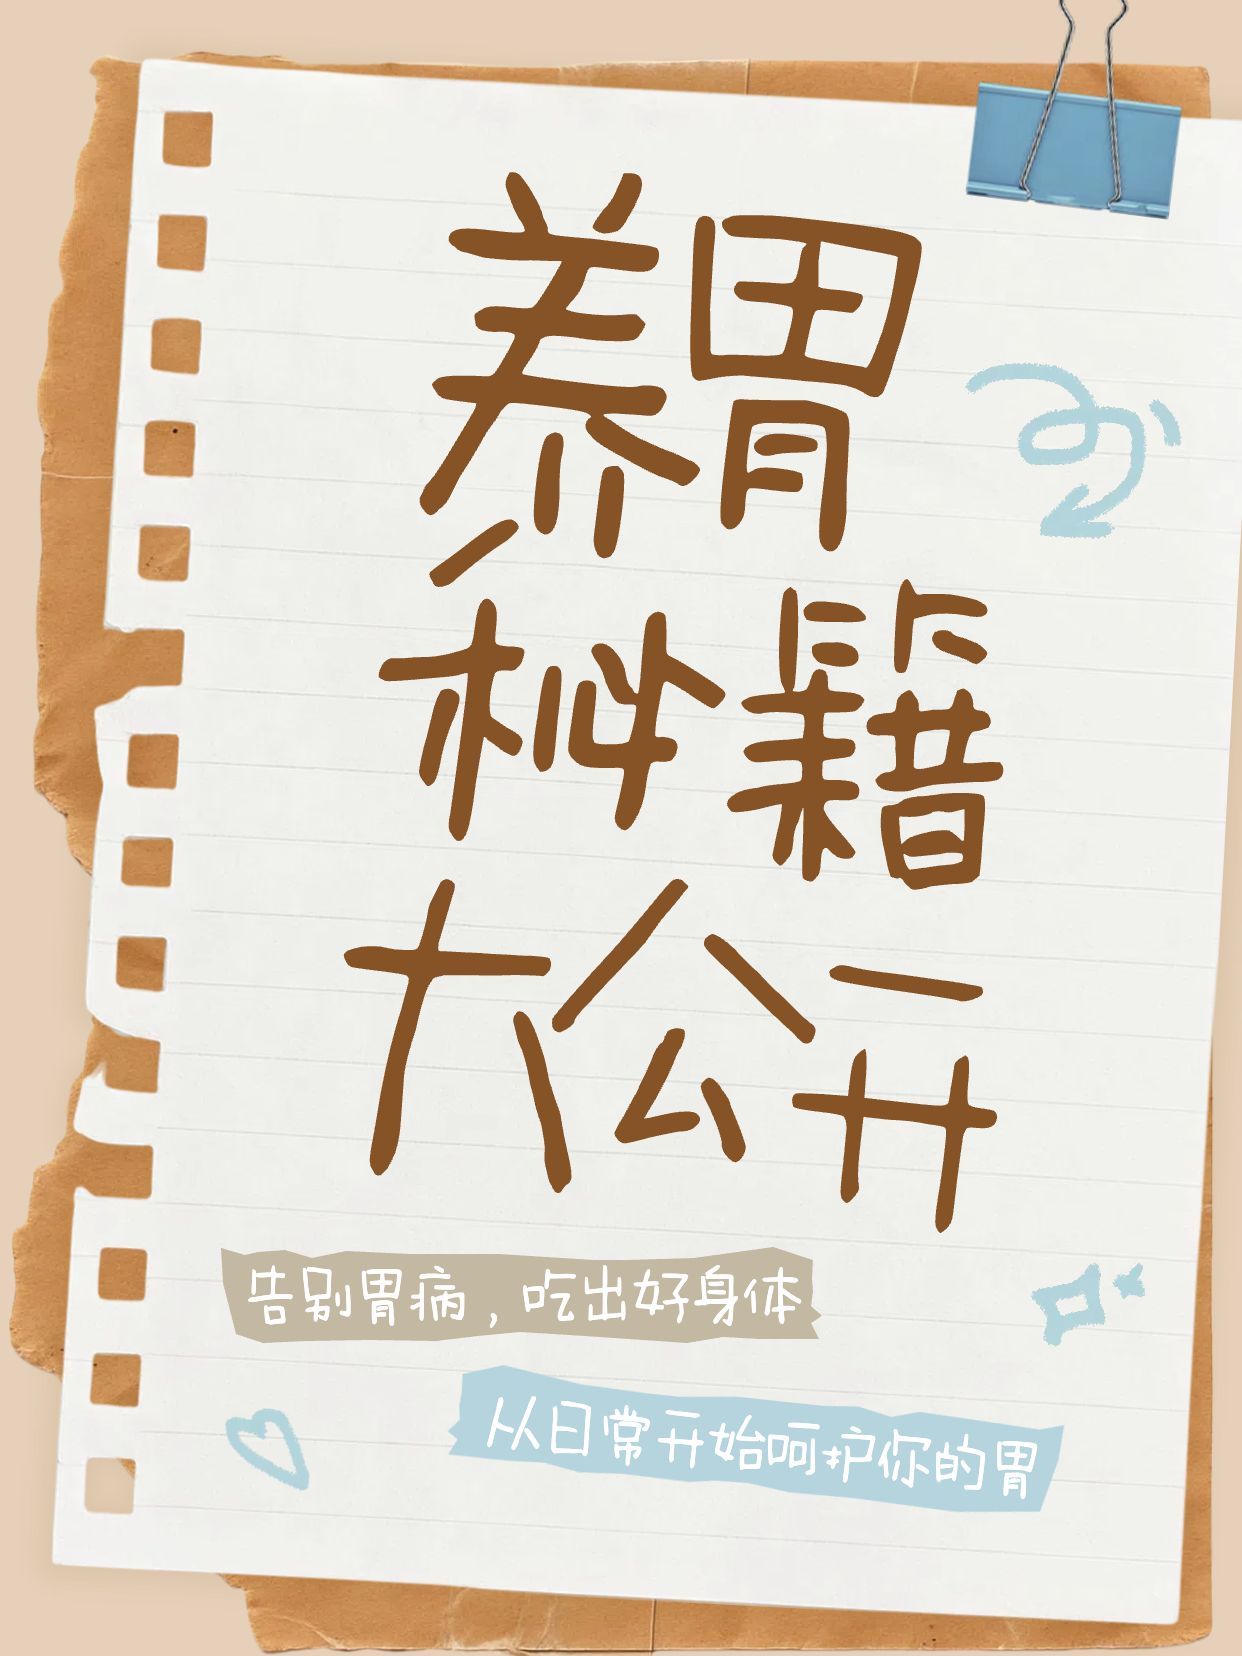 养胃
秘籍
大公开
告别胃病，吃出好身体
从日常开始呵护你的胃